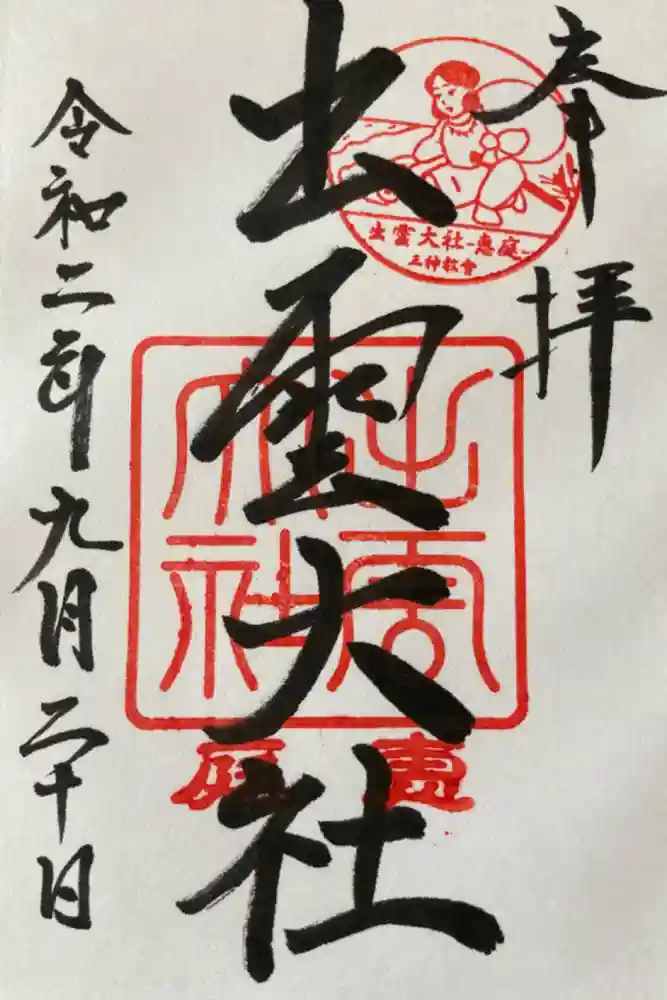 奉拝
出雲大社
令和二年九月二十日
出雲大社-恵庭-
三神教會
出雲
大社
恵庭